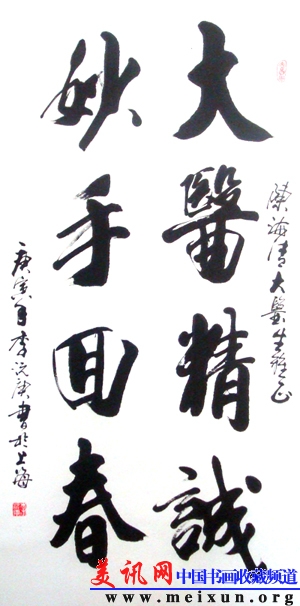 大醫精誠
妙手回春
陳海清大醫生雅正
庚寅年李沅庚書於上海
美讯网
中国书画收藏频道
www.meixun.org